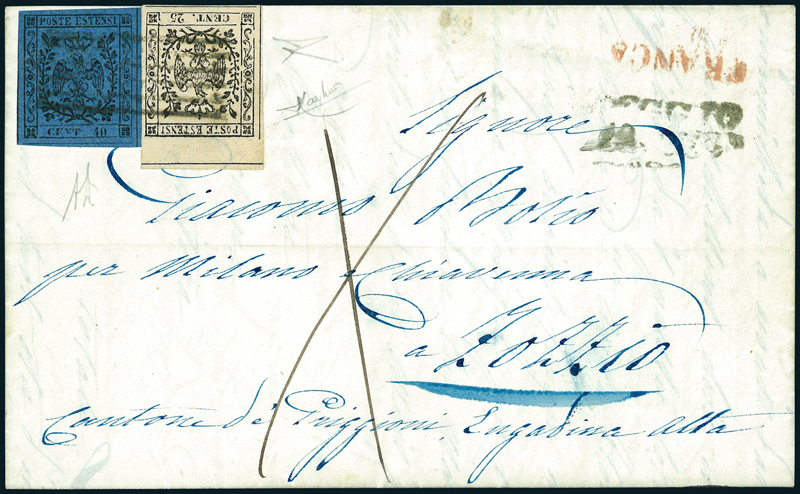 POSTE ESTENSI
CENT. 40
CENT. 25
POSTE ESTENSI
FRANCA
Signore
Giacomo
per Milano e Chiavenna
a Zozzio
Cantone dé Griggioni, Engadina Alta